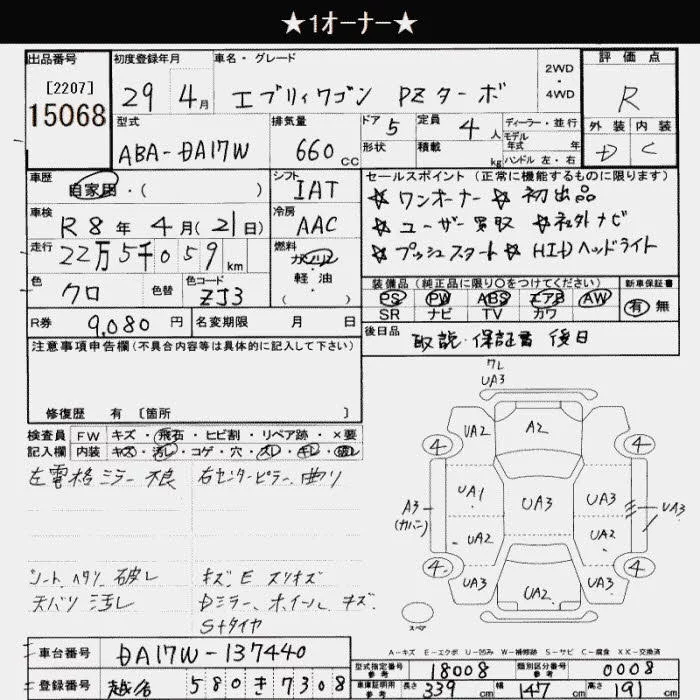 ★1オーナー★
出品番号 初度登録年月 車名・グレード 2WD・4WD 評価点
[2207]
15068
29 4月 エブリィワゴン PZターボ R
型式 排気量 ドア 5 定員 4人 ディーラー・並行 外装 内装
ABA-DA17W 660cc 形状 積載 kg モデル年式 年 D C
ハンドル 左・右
車歴 自家用・( ) シフト IAT セールスポイント (正常に機能するものに限ります)
☆ ワンオーナー ☆ 初出品
車検 R8年 4月(21日) 冷房 AAC ☆ ユーザー買取 ☆ 社外ナビ
走行 22万5千059km 燃料 ガソリン 軽・油 ( ) ☆ プッシュスタート ☆ HIDヘッドライト
色 クロ 色替 色コード ZJ3 装備品 (純正品に限り○をつけてください) 新車保証書
PS PW ABS エアB AW 有 無
SR ナビ TV カワ
R券 9,080円 名変期限 月 日 後日品 取説・保証書 後日
注意事項申告欄(不具合内容等は具体的に記入して下さい)
修復歴 有 〔箇所 〕
検査員 FW キズ・飛石・ヒビ割・リペア跡・×要
記入欄 内装 キズ・汚レ・コゲ・穴・スレ・キレ・破レ
左電格ミラー不良 右センターピラー、曲り
シートヘタリ、破レ キズ、E スリキズ
天バリ汚レ Dミラー、ホイール、キズ、
S+タイヤ
ワレ
UA3
UA2 A2
4 4
A3 (カバン) UA1 UA3 UA3 UA3
UA2 UA2
4 4
UA3 UA2 UA3
スペア
A-キズ E-エクボ U-凹み W-補修跡 S-サビ C-腐食 XX-交換済
車台番号 DA17W-137440 型式指定番号 参考 18008 類別区分番号 参考 0008
登録番号 580き7308 車体証明用 参考 長さ 339cm 幅 147cm 高さ 191cm